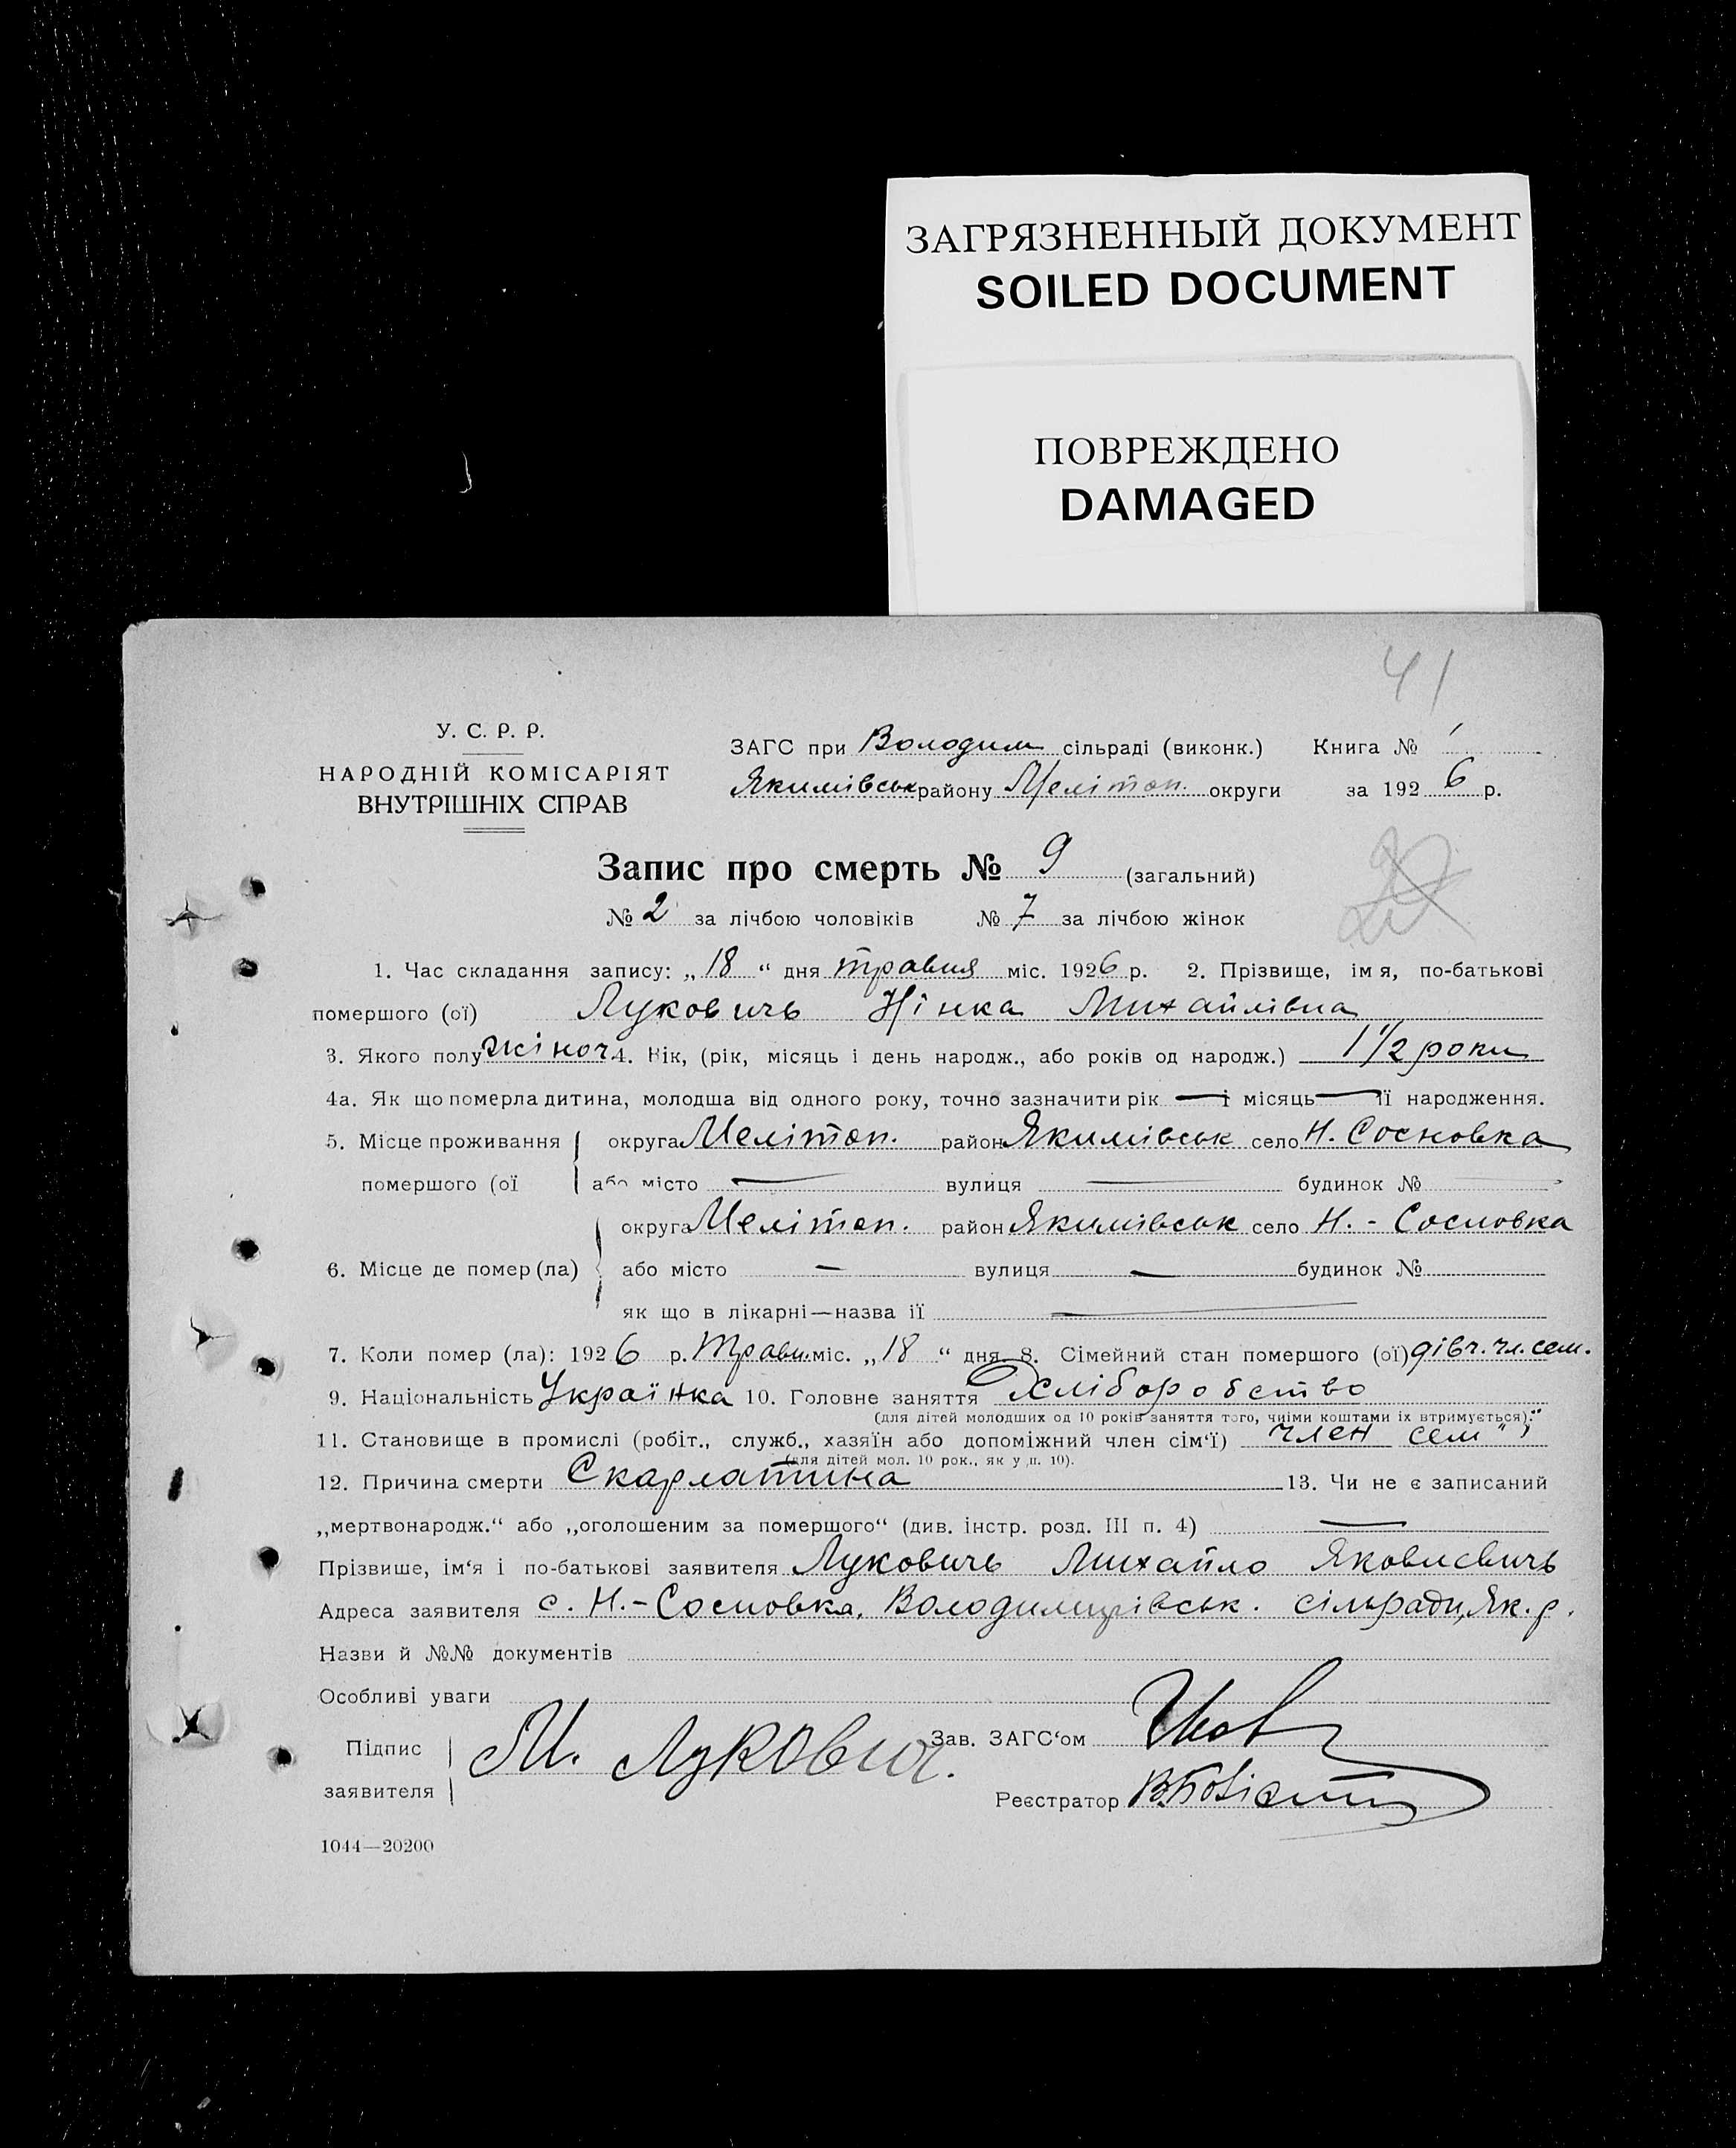 ЗАГРЯЗНЕННЫЙ ДОКУМЕНТ
SOILED DOCUMENT
ПОВРЕЖДЕНО
DAMAGED
41
У. С. Р. Р.
НАРОДНІЙ КОМІСАРІЯТ
ВНУТРІШНІХ СПРАВ
ЗАГС при Володим сільраді (виконк.) Книга № 1
Якимівськ району Меліт оп. округи за 1926 р.
Запис про смерть № 9 (загальний)
№ 2 за лічбою чоловіків № 7 за лічбою жінок
1. Час складання запису: „18“ дня травня міс. 1926 р. 2. Прізвище, імя, по-батькові
помершого (ої) Луковичь Нінка Михайлівна
3. Якого полу жіноч. 4. Вік, (рік, місяць і день народж., або років од народж.) 1 1/2 роки
4а. Як що померла дитина, молодша від одного року, точно зазначити рік — і місяць — її народження.
5. Місце проживання округа Мелітоп. район Якимівськ село Н. Сосновка
помершого (ої або місто — вулиця — будинок № —
округа Мелітоп. район Якимівськ село Н.-Сосновка
6. Місце де помер (ла) або місто — вулиця — будинок №
як що в лікарні—назва її —
7. Коли помер (ла): 1926 р. Травн. міс. „18“ дня 8. Сімейний стан помершого (ої) дівч. чл. сем.
9. Національність Українка 10. Головне заняття Хліборобство
(для дітей молодших од 10 років заняття того, чиїми коштами їх втримується).
11. Становище в промислі (робіт., служб., хазяїн або допоміжний член сім‘ї) член сем"ї
(для дітей мол. 10 рок., як у п. 10).
12. Причина смерти Скарлатина 13. Чи не є записаний
„мертвонародж.“ або „оголошеним за помершого“ (див. інстр. розд. III п. 4) —
Прізвище, ім‘я і по-батькові заявителя Луковичь Михайло Яковлевичь
Адреса заявителя с. Н.-Сосновка, сільради, Як. р.
Назви й №№ документів
Особливі уваги
Підпис
заявителя
М. Лукович.
Зав. ЗАГС‘ом
Реєстратор
1044—20200